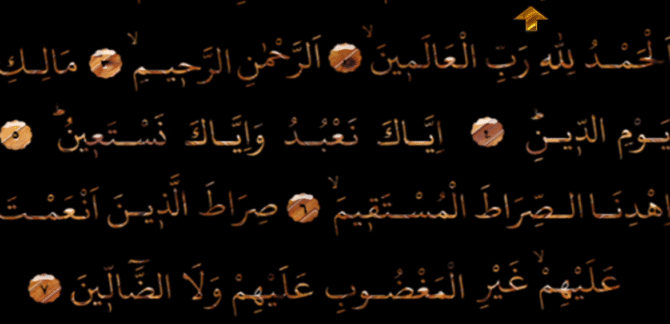 اَلْحَمْدُ لِلّٰهِ رَبِّ الْعَالَمِينَۙ ﴿٢﴾ اَلرَّحْمٰنِ الرَّحِيمِۙ ﴿٣﴾ مَالِكِ
يَوْمِ الدِّينِۜ ﴿٤﴾ اِيَّاكَ نَعْبُدُ وَاِيَّاكَ نَسْتَعِينُۜ ﴿٥﴾
اِهْدِنَا الصِّرَاطَ الْمُسْتَقِيمَۙ ﴿٦﴾ صِرَاطَ الَّذِينَ اَنْعَمْتَ
عَلَيْهِمْۙ غَيْرِ الْمَغْضُوبِ عَلَيْهِمْ وَلَا الضَّٓالِّينَ ﴿٧﴾